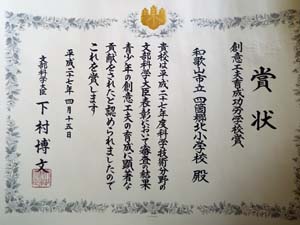 賞状
創意工夫育成功労学校賞
和歌山市立四箇郷北小学校 殿
貴校は平成二十七年度科学技術分野の
文部科学大臣表彰において審査の結果
青少年の創意工夫の育成に顕著な
貢献をされたと認められましたので
これを賞します
平成二十七年四月十五日
文部科学大臣 下村博文